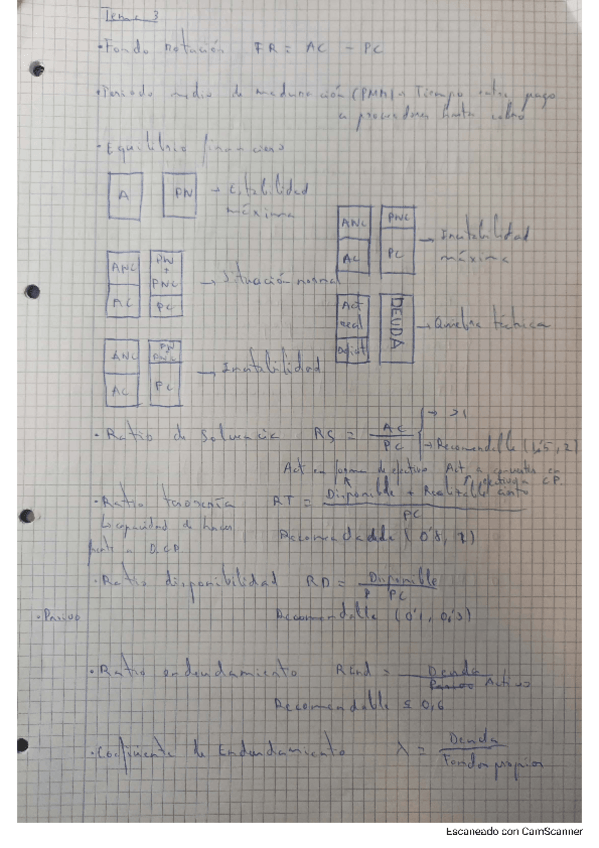 Tema 3
· Fondo Rotación FR = AC - PC
· Periodo medio de maduración (PMM) = Tiempo entre pago
a proveedores hasta cobro
· Equilibrio financiero
A PN → Estabilidad
máxima
ANC PNC → Inestabilidad
AC PC máxima
ANC PN + PNC → Situación normal
AC PC
Act real DEUDA → Quiebra técnica
ANC PN PNC → Inestabilidad
AC PC
· Ratio de Solvencia RS = AC / PC → >1
→ Recomendable (1,5, 2)
Act en forma de efectivo Act. a convertir en
efectivo a CP.
· Ratio tesorería RT = Disponible + Realizable cierto / PC
↳ capacidad de hacer
frente a D.CP. Recomendable (0'8, 1)
· Ratio disponibilidad RD = Disponible / PC
· Pasivo Recomendable (0'1, 0'3)
· Ratio endeudamiento REnd = Deuda / Pasivo Activo
Recomendable ≤ 0,6
· Coeficiente de Endeudamiento λ = Deuda / Fondos propios
Escaneado con CamScanner